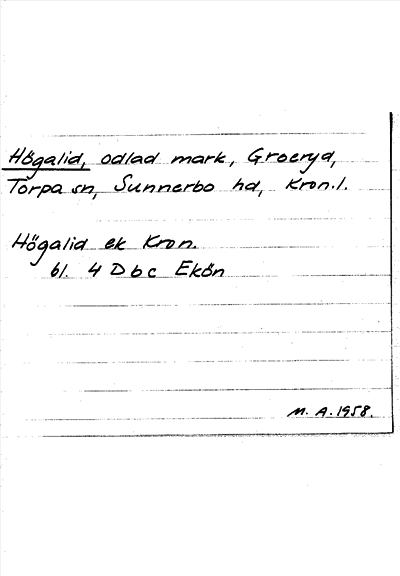 Högalid, odlad mark, Groeryd,
Torpa sn, Sunnerbo hd, Kron.l.
Högalid ek Kron.
bl. 4 D b c Ekön
M. A. 1958.